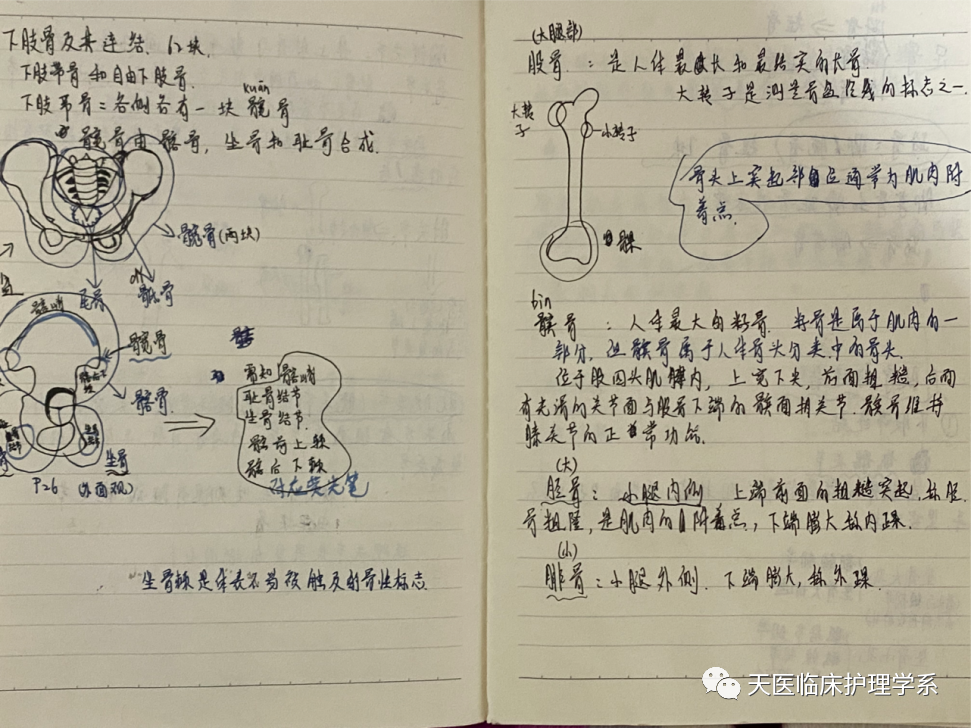 下肢骨及其连结. 62块.
下肢带骨和自由下肢骨.
kuān
下肢带骨：各侧各有一块髋骨
髋骨由髂骨，坐骨和耻骨合成.
髋骨(两块)
尾骨
骶骨
髂嵴
髋骨
髂骨.
坐骨
P26 (外面观)
需知 髂嵴
耻骨结节
坐骨结节.
髂前上棘
髂后下棘
坐骨棘是体表不易被触及的骨性标志.
(大腿部)
股骨：是人体最长和最结实的长骨
大转子是测量骨盆径线的标志之一.
大转子
小转子
骨头上突起部位通常为肌肉附
着点.
髁
bìn
髌骨：人体最大的籽骨. 籽骨是属于肌肉的一
部分，但髌骨属于人体骨头分类中的骨头.
位于股四头肌腱内，上宽下尖，前面粗糙，后面
有光滑的关节面与股骨下端的髌面相关节. 髌骨维持
膝关节的正常功能.
(大)
胫骨：小腿内侧 上端前面的粗糙突起，称胫
骨粗隆，是肌肉的附着点，下端膨大称内踝.
(小)
腓骨：小腿外侧. 下端膨大，称外踝.
天医临床护理学系